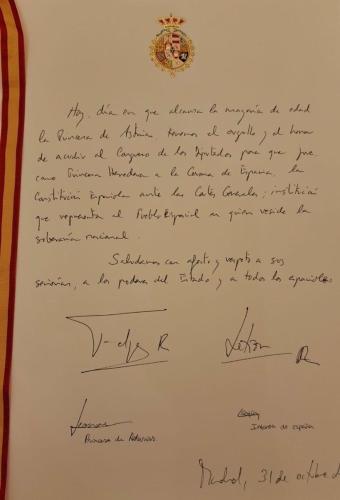 Hoy, día en que alcanza la mayoría de edad
la Princesa de Asturias tenemos el orgullo y el honor
de acudir al Congreso de los Diputados para que jure
como Princesa Heredera a la Corona de España, la
Constitución Española ante las Cortes Generales; institución
que representa al Pueblo Español en quien reside la
soberanía nacional.
Saludamos con afecto y respeto a sus
señorías, a los poderes del Estado y a todos los españoles
Felipe R
Letizia R
Leonor
Princesa de Asturias
Infanta de España
Madrid, 31 de octubre